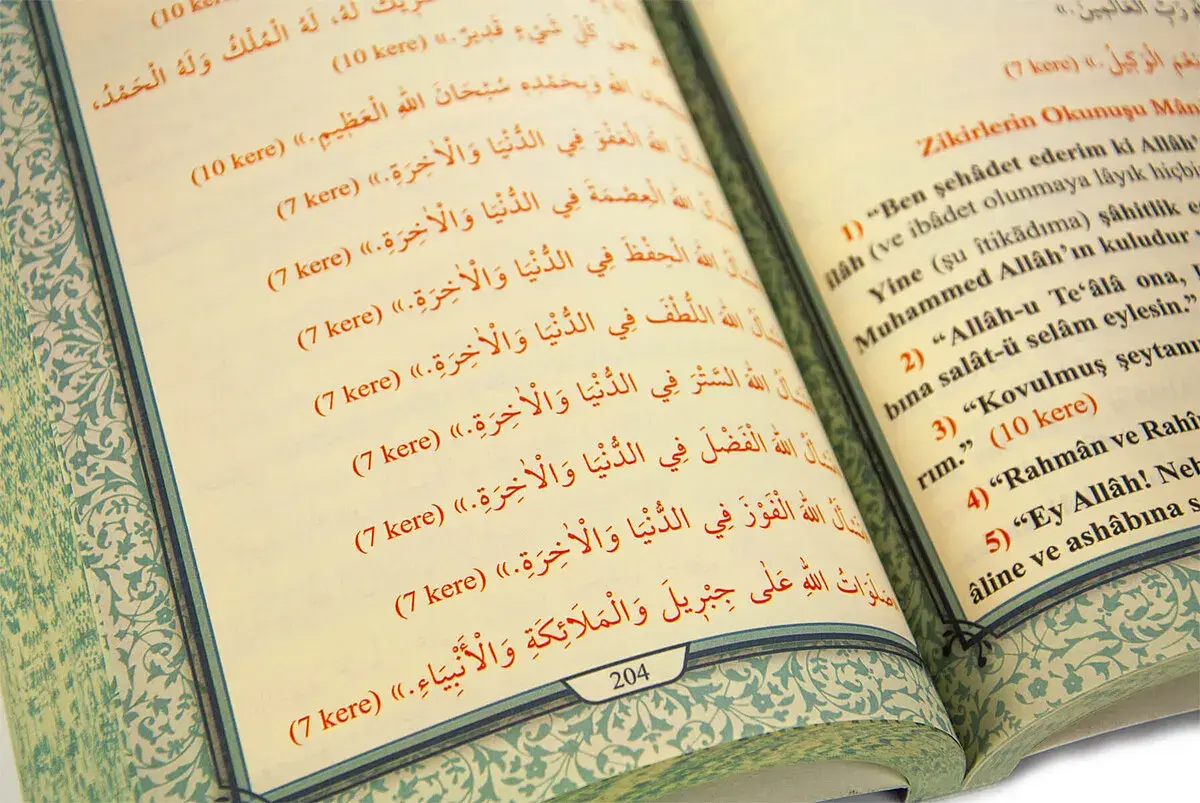 (10 kere)
شَرِيكَ لَهُ، لَهُ الْمُلْكُ وَلَهُ الْحَمْدُ،
كُلِّ شَيْءٍ قَدِيرٌ.» (10 kere)
اللهِ وَبِحَمْدِهِ سُبْحَانَ اللهِ الْعَظِيمِ.» (10 kere)
اللهَ الْعَفْوَ فِي الدُّنْيَا وَالْاٰخِرَةِ.» (7 kere)
اللهَ الْعِصْمَةَ فِي الدُّنْيَا وَالْاٰخِرَةِ.» (7 kere)
اللهَ الْحِفْظَ فِي الدُّنْيَا وَالْاٰخِرَةِ.» (7 kere)
اللهَ اللُّطْفَ فِي الدُّنْيَا وَالْاٰخِرَةِ.» (7 kere)
اللهَ السَّتْرَ فِي الدُّنْيَا وَالْاٰخِرَةِ.» (7 kere)
اللهَ الْفَضْلَ فِي الدُّنْيَا وَالْاٰخِرَةِ.» (7 kere)
اللهَ الْفَوْزَ فِي الدُّنْيَا وَالْاٰخِرَةِ.» (7 kere)
صَلَوَاتُ اللهِ عَلٰى جِبْرِيلَ وَالْمَلَائِكَةِ وَالْأَنْبِيَاءِ.» (7 kere)
204
رَبِّ الْعَالَمِينَ.»
نِعْمَ الْوَكِيلُ.» (7 kere)
Zikirlerin Okunuşu Mân
1) “Ben şehâdet ederim ki Allâh’
ilâh (ve ibâdet olunmaya lâyık hiçbi
Yine (şu îtikādıma) şâhitlik e
Muhammed Allâh’ın kuludur
2) “Allâh-u Te‘âlâ ona,
bına salât-ü selâm eylesin.”
3) “Kovulmuş şeytanı
rım.” (10 kere)
4) “Rahmân ve Rahî
5) “Ey Allâh! Neb
âline ve ashâbına s